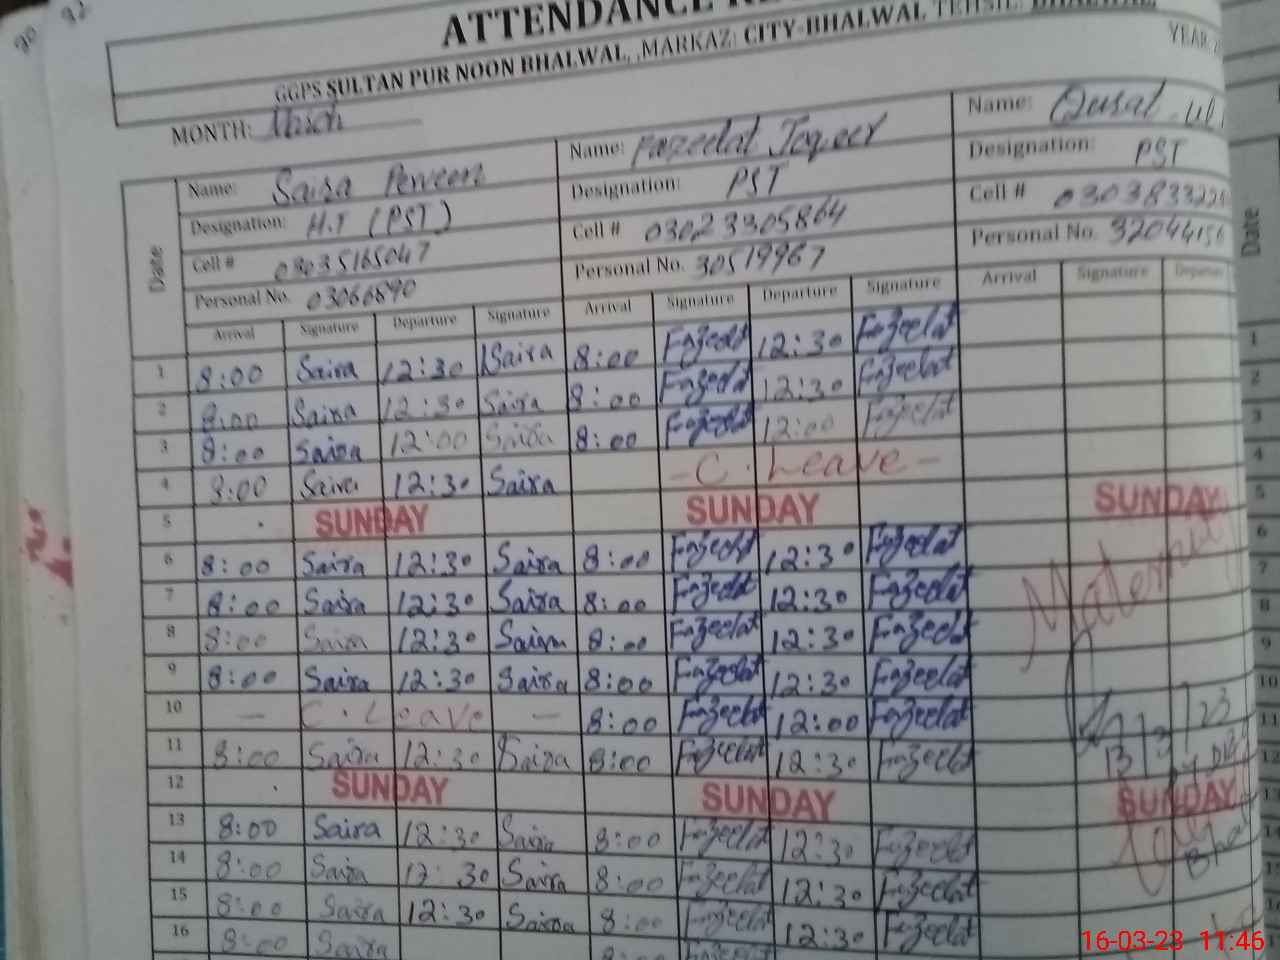 90 92
ATTENDANCE
GGPS SULTAN PUR NOON BHALWAL, .MARKAZ: CITY-BHALWAL TEHSIL: BHALWAL,
YEAR
MONTH: March
Date
Name: Saira Perveen Name: Fazeelat Toqeer Name:
Designation: H.T (PST) Designation: PST Designation: PST
Cell # 03035165047 Cell # 03023305864 Cell #
Personal No. 03066890 Personal No. 30519967 Personal No.
Arrival Signature Departure Signature Arrival Signature Departure Signature Arrival Signature
1 8:00 Saira 12:30 Saira 8:00 Fazeelat 12:30 Fazeelat
2 8:00 Saira 12:30 Saira 8:00 Fazeelat 12:30 Fazeelat
3 8:00 Saira 12:00 Saira 8:00 Fazeelat 12:00 Fazeelat
4 8:00 Saira 12:30 Saira - C. Leave -
5 SUNDAY SUNDAY SUNDAY
6 8:00 Saira 12:30 Saira 8:00 Fazeelat 12:30 Fazeelat
7 8:00 Saira 12:30 Saira 8:00 Fazeelat 12:30 Fazeelat
8 8:00 Saira 12:30 Saira 8:00 Fazeelat 12:30 Fazeelat
9 8:00 Saira 12:30 Saira 8:00 Fazeelat 12:30 Fazeelat
10 - C. Leave - 8:00 Fazeelat 12:00 Fazeelat
11 8:00 Saira 12:30 Saira 8:00 Fazeelat 12:30 Fazeelat
12 SUNDAY SUNDAY SUNDAY
13 8:00 Saira 12:30 Saira 8:00 Fazeelat 12:30 Fazeelat
14 8:00 Saira 12:30 Saira 8:00 Fazeelat 12:30 Fazeelat
15 8:00 Saira 12:30 Saira 8:00 Fazeelat 12:30 Fazeelat
16 8:00 Saira
Date
1
2
3
4
5
6
7
8
9
10
11
12
13
16-03-23 11:46